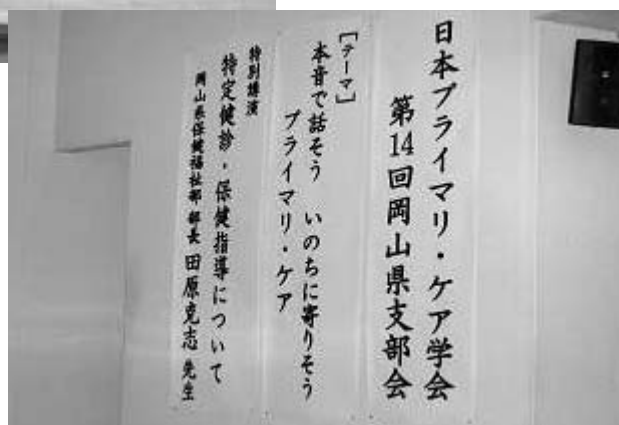 日本プライマリ・ケア学会
第14回岡山県支部会
［テーマ］
本音で話そう いのちに寄りそう
プライマリ・ケア
特別講演
特定健診・保健指導について
岡山県保健福祉部 部長 田原克志 先生